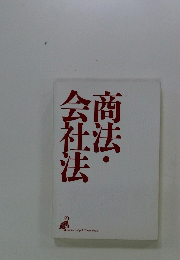 商法・
会社法